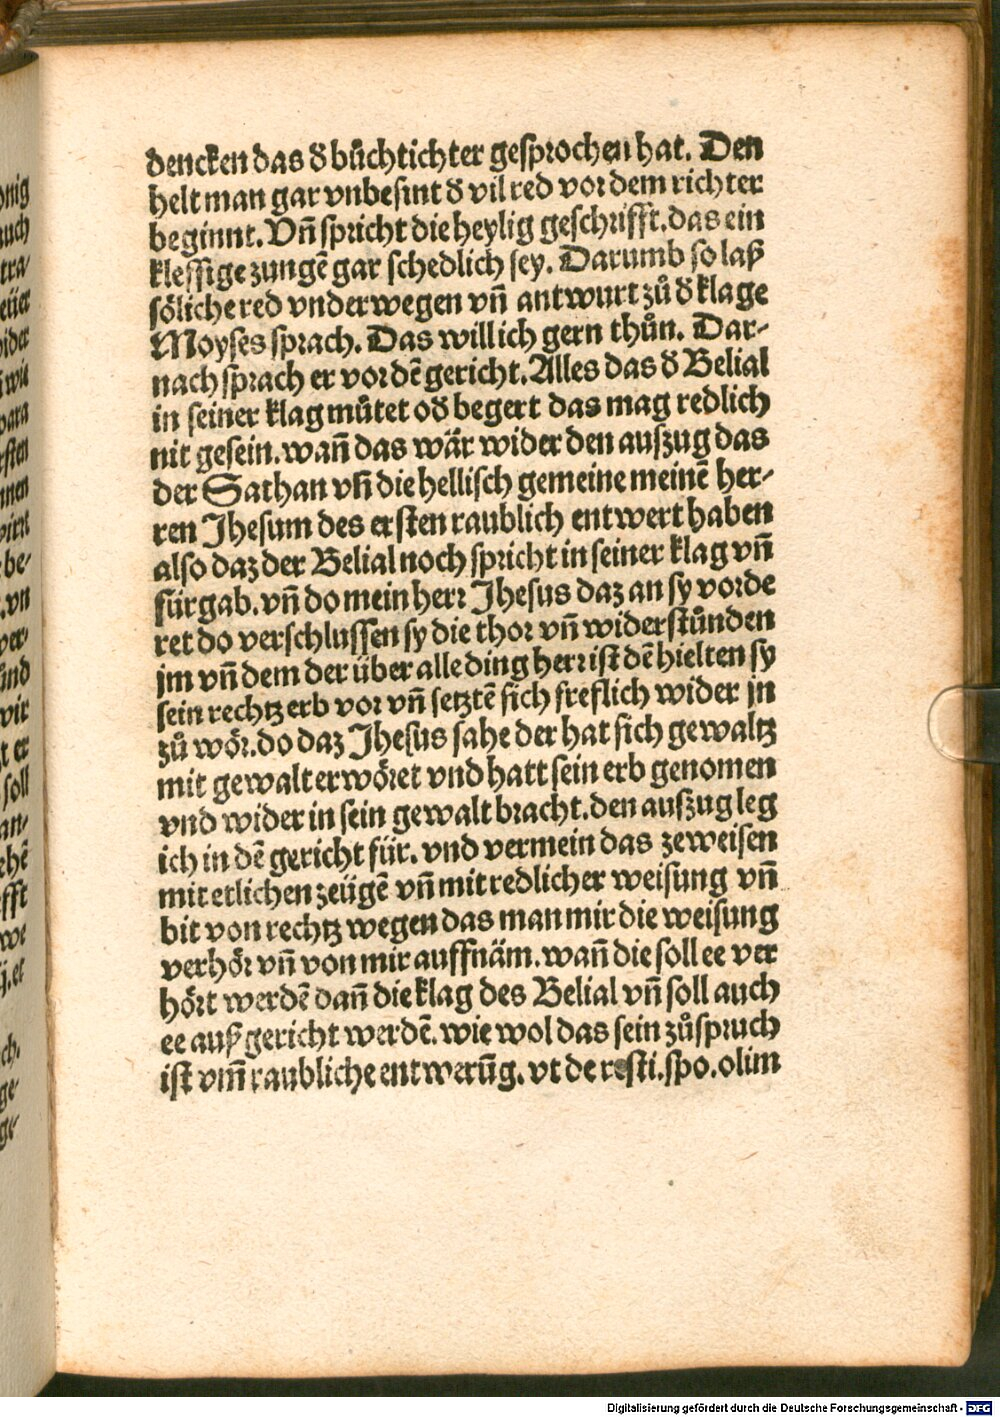 dencken das d̕ bůchtichter gesprochen hat. Den
helt man gar vnbesint d̕ vil red vor dem richter
beginnt. Vn̄ spricht die heylig geschrifft. das ein
kleffige zungē gar schedlich sey. Darumb so laß
sőliche red vnderwegen vn̄ antwurt zů d̕ klage
Moyses sprach. Das will ich gern thůn. Dar-
nach sprach er vor dē gericht. Alles das d̕ Belial
in seiner klag můtet od̕ begert das mag redlich
nit gesein. wan̄ das wär wider den auszug das
der Sathan vn̄ die hellisch gemeine meinē her-
ren Jhesum des ersten raublich entwert haben
also daz der Belial noch spricht in seiner klag vn̄
fürgab. vn̄ do mein herr Jhesus daz an sy vorde
ret do verschlussen sy die thor vn̄ widerstůnden
jm vn̄ dem der über alle ding herr ist dē hielten sy
sein rechtz erb vor vn̄ setztē sich freflich wider jn
zů wőr. do daz Jhesus sahe der hat sich gewaltz
mit gewalt erwőret vnd hatt sein erb genomen
vnd wider in sein gewalt bracht. den auszug leg
ich in dē gericht für. vnd vermein das zeweisen
mit etlichen zeügē vn̄ mit redlicher weisung vn̄
bit von rechtz wegen das man mir die weisung
verhőr vn̄ von mir auffnäm. wan̄ die soll ee ver
hőrt werdē dan̄ die klag des Belial vn̄ soll auch
ee auß gericht werdē. wie wol das sein zůspruch
ist vm̄ raubliche entwerūg. vt de resti. spo. olim
onig
auch
tra-
eüer
wider
wil
para
rsten
nnen
wirt
be-
vn
ver-
ünd
wir
t er
soll
an-
chē
fft
we
ij. er
ch.
ge
ge-
Digitalisierung gefördert durch die Deutsche Forschungsgemeinschaft - DFG